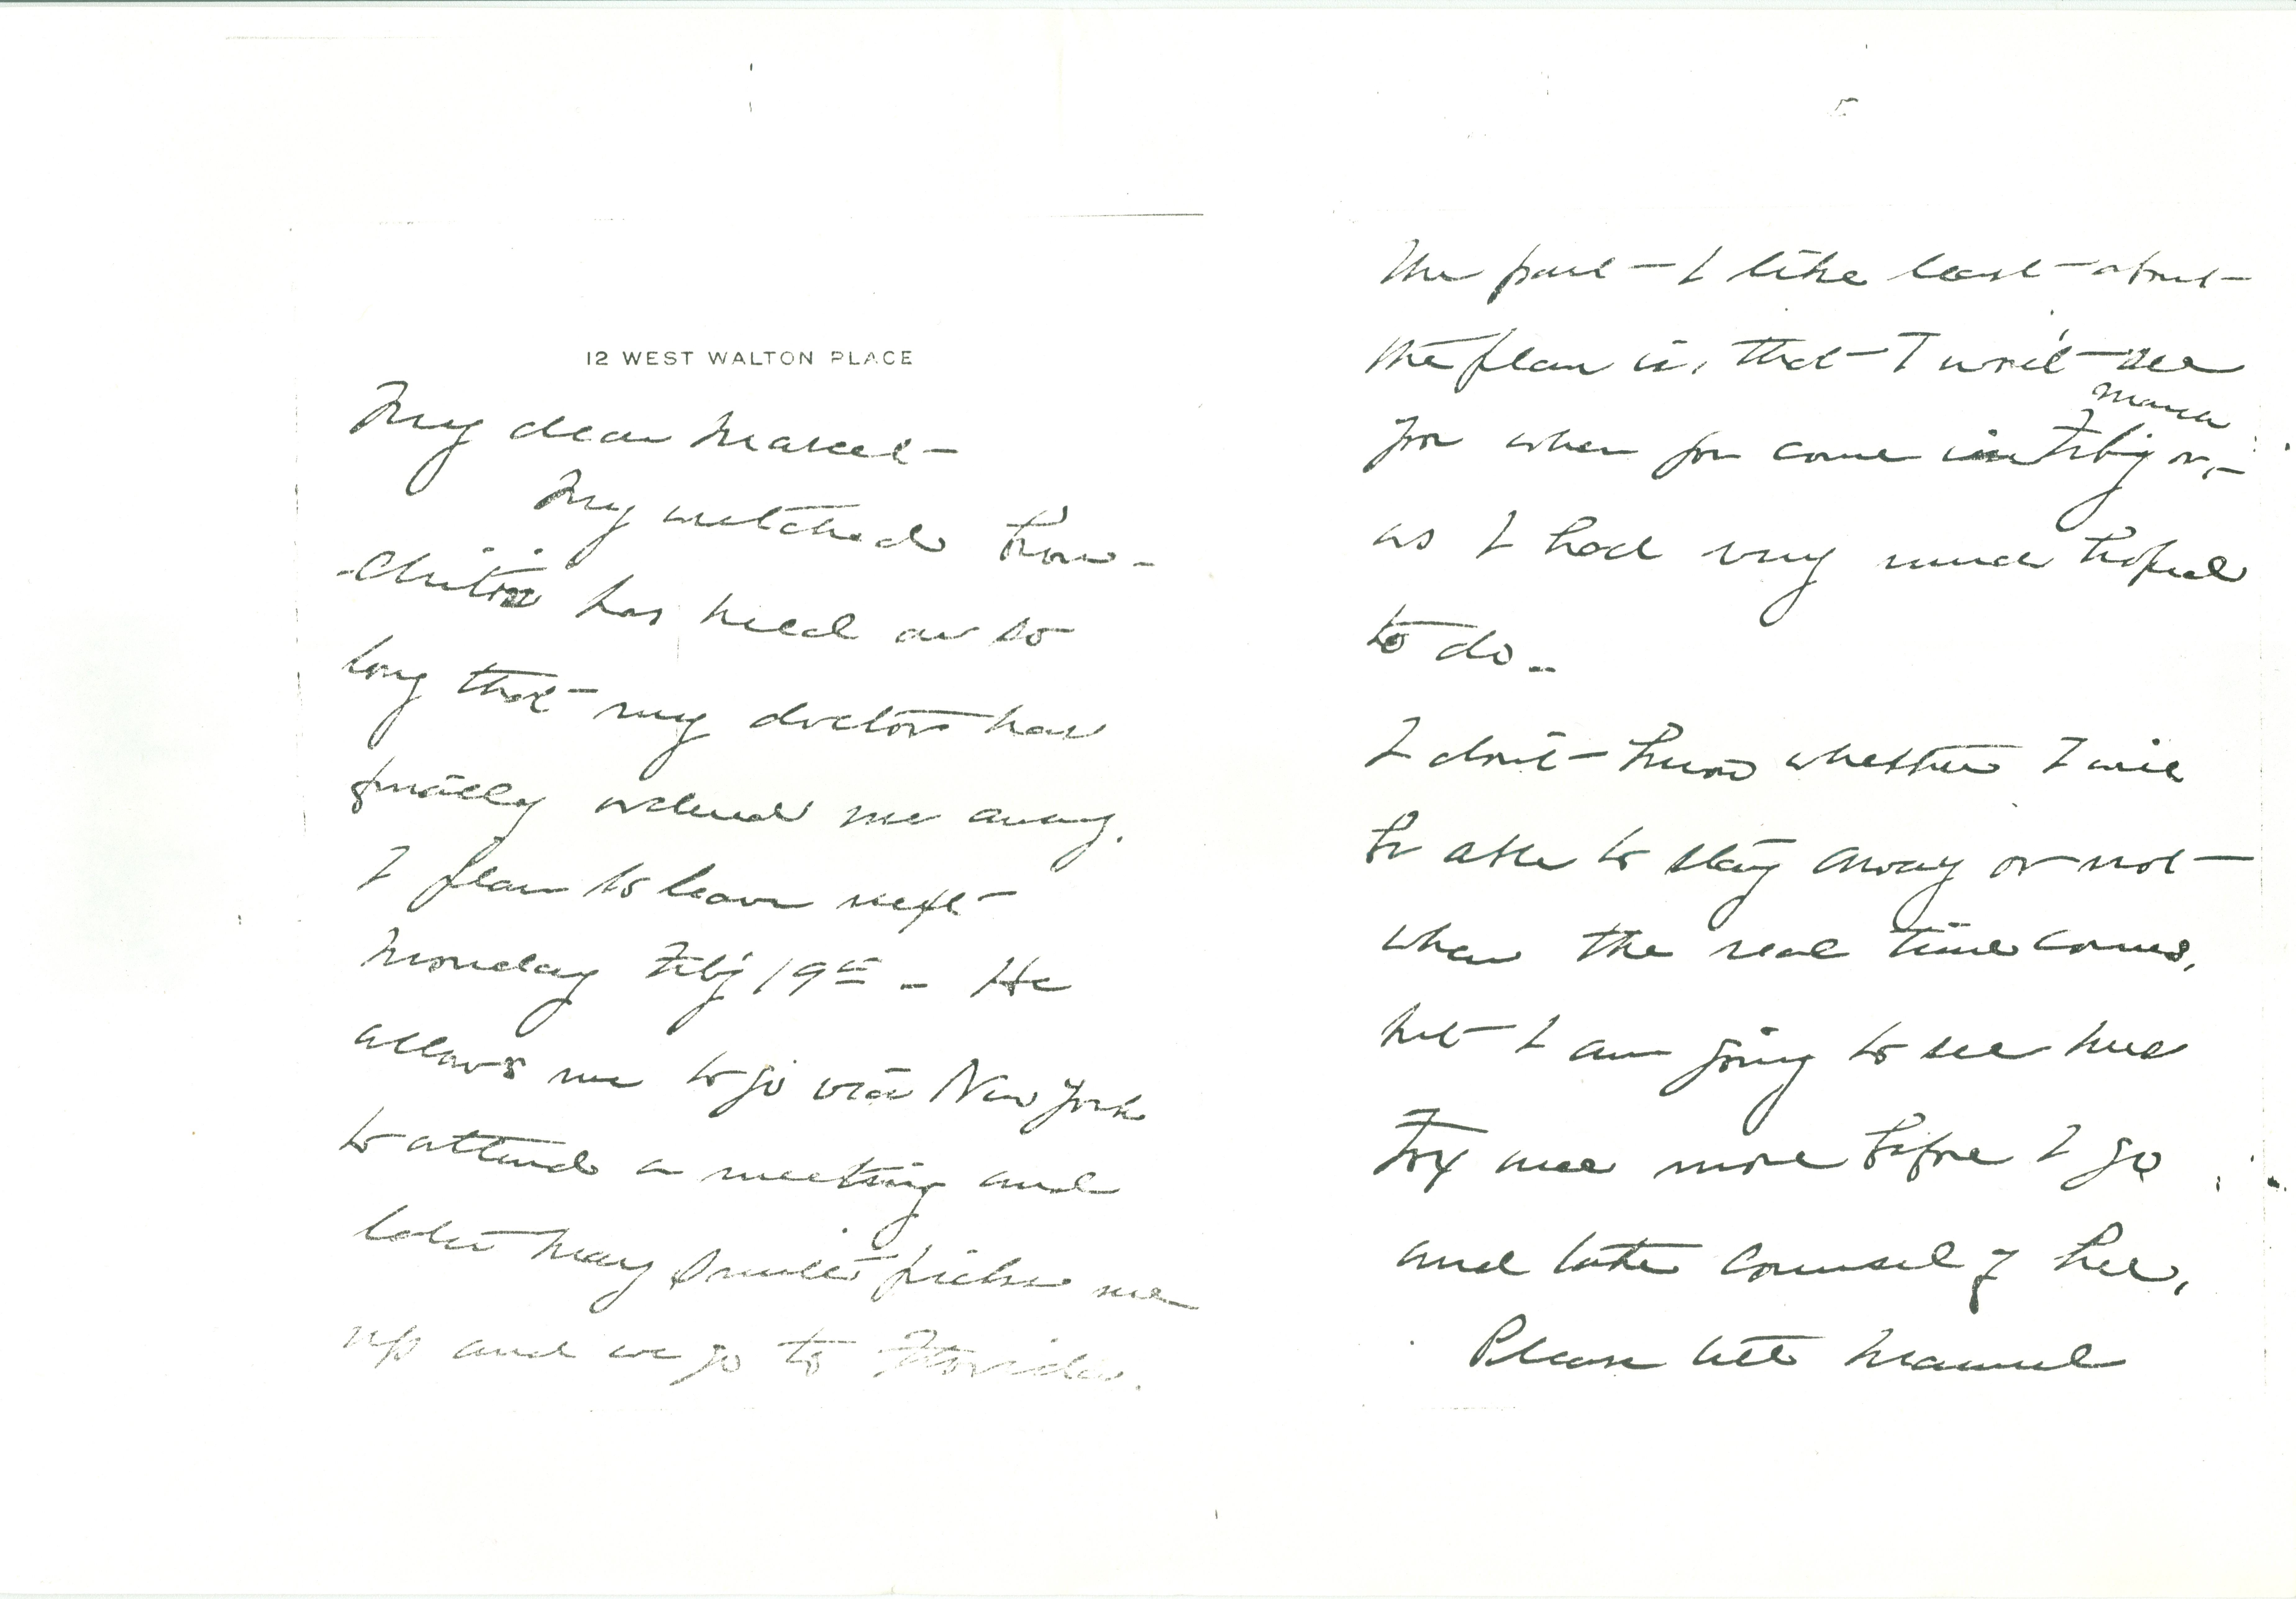 12 WEST WALTON PLACE
My dear Marcel-
My wretched bron-
-chitis has held on so
long that my doctor has
finally ordered me away.
I plan to leave next
Monday Feby 19th - He
allows me to go via New York
to attend a meeting and
later May Smith picks me
up and we go to Florida.
The part I like least about
the plan is, that I won't see
March
you when you come in Feby or,
as I had very much hoped
to do -
I don't know whether I will
be able to stay away or not
when the real time comes,
but I am going to see
once more before I go
and take counsel of her,
Please tell